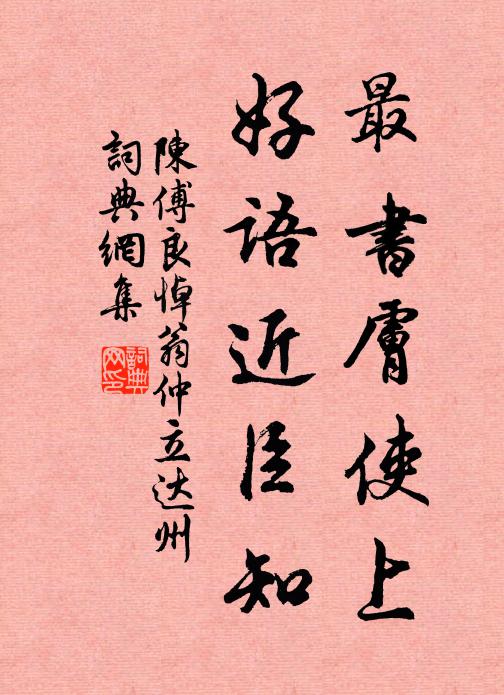 最書膚使上
好語近臣知
陳傅良悼翁仲立达州
詞典網集
詞典网印